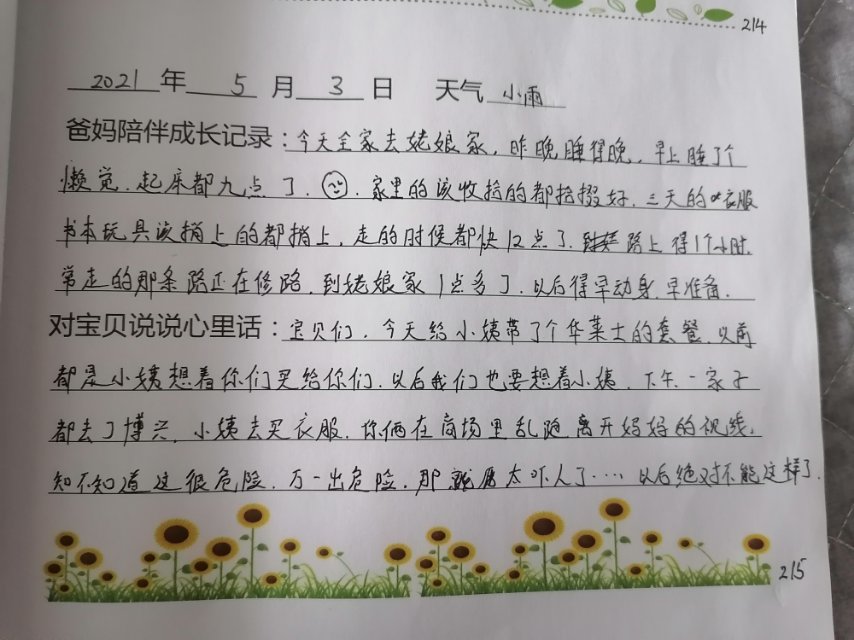 214
2021 年 5 月 3 日 天气 小雨
爸妈陪伴成长记录：今天全家去姥娘家，昨晚睡得晚，早上睡了个
懒觉，起床都九点了，家里的该收拾的都拾掇好，三天的衣服
书本玩具该捎上的都捎上，走的时候都快12点了，路上得1个小时，
常走的那条路正在修路，到姥娘家1点多了，以后得早动身，早准备。
对宝贝说说心里话：宝贝们，今天给小姨带了个华莱士的套餐，以前
都是小姨想着你们买给你们，以后我们也要想着小姨，下午一家子
都去了博兴，小姨去买衣服，你俩在商场里乱跑离开妈妈的视线，
知不知道这很危险，万一出危险，那太吓人了……以后绝对不能这样了。
215